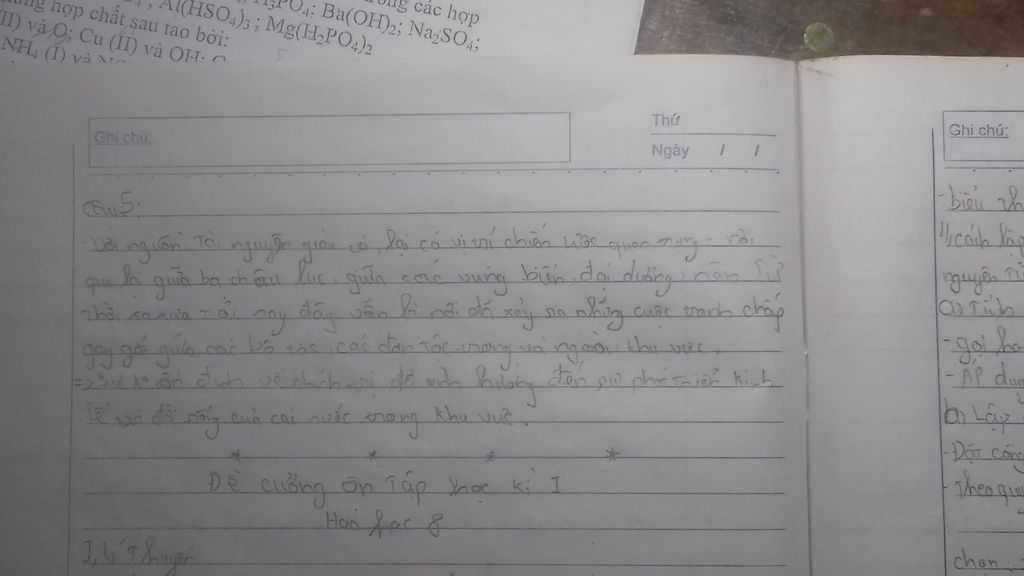 Al(HSO₄)₃; H₃PO₄; Ba(OH)₂; Na₂SO₄;
hợp chất sau tạo bởi: Mg(H₂PO₄)₂
và O; Cu (II) và OH;
NH₄ (I) và
Ghi chú:
Thứ
Ngày / /
Câu 5:
- Với nguồn tài nguyên giàu có, lại có vị trí chiến lược quan trọng - nơi
qua lại giữa ba châu lục, giữa các vùng biển, đại dương, nên từ
thời xa xưa tới nay đây vẫn là nơi đã xảy ra những cuộc tranh chấp
gay gắt giữa các bộ tộc, các dân tộc trong và ngoài khu vực.
=> Sự ko ổn định về chính trị đã ảnh hưởng đến sự phát triển kinh
tế và đời sống của các nước trong khu vực.
* * * *
Đề cương ôn tập học kì I
Hoá học 8
I, Lí thuyết
Ghi chú:
- biểu
1, cách lập
nguyên
a) Tính
- gọi
- Áp
b) Lập
- Đặt công
- Theo quy
chọn